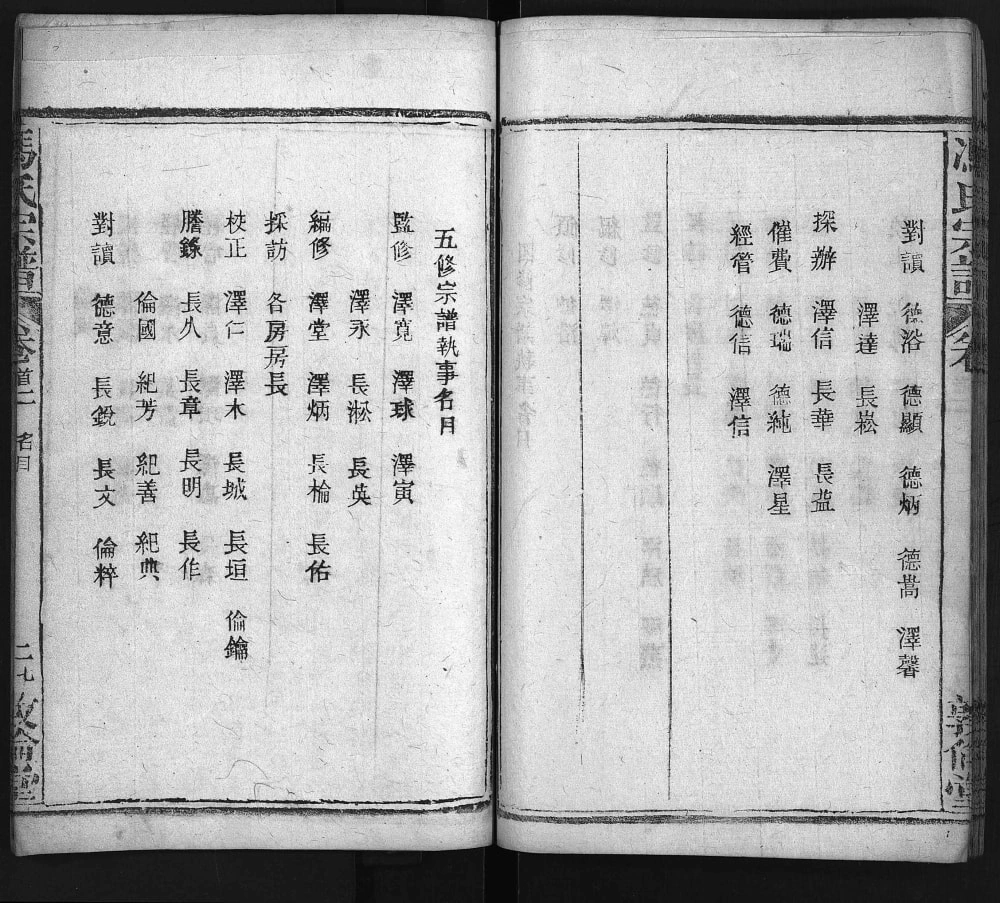 對讀 德浴 德顯 德炳 德嵩 澤馨
澤達 長崧
探辦 澤信 長華 長益
催費 德瑞 德純 澤星
經管 德信 澤信
五修宗譜執事名目
監修 澤寬 澤球 澤寅
澤永 長淞 長英
編修 澤堂 澤炳 長棆 長佑
採訪 各房房長
校正 澤仁 澤木 長城 長垣 倫鑰
謄錄 長久 長章 長明 長作
倫國 紀芳 紀善 紀典
對讀 德意 長銳 長文 倫粹
馮氏宗譜 卷首二 名目 二七 敦倫堂